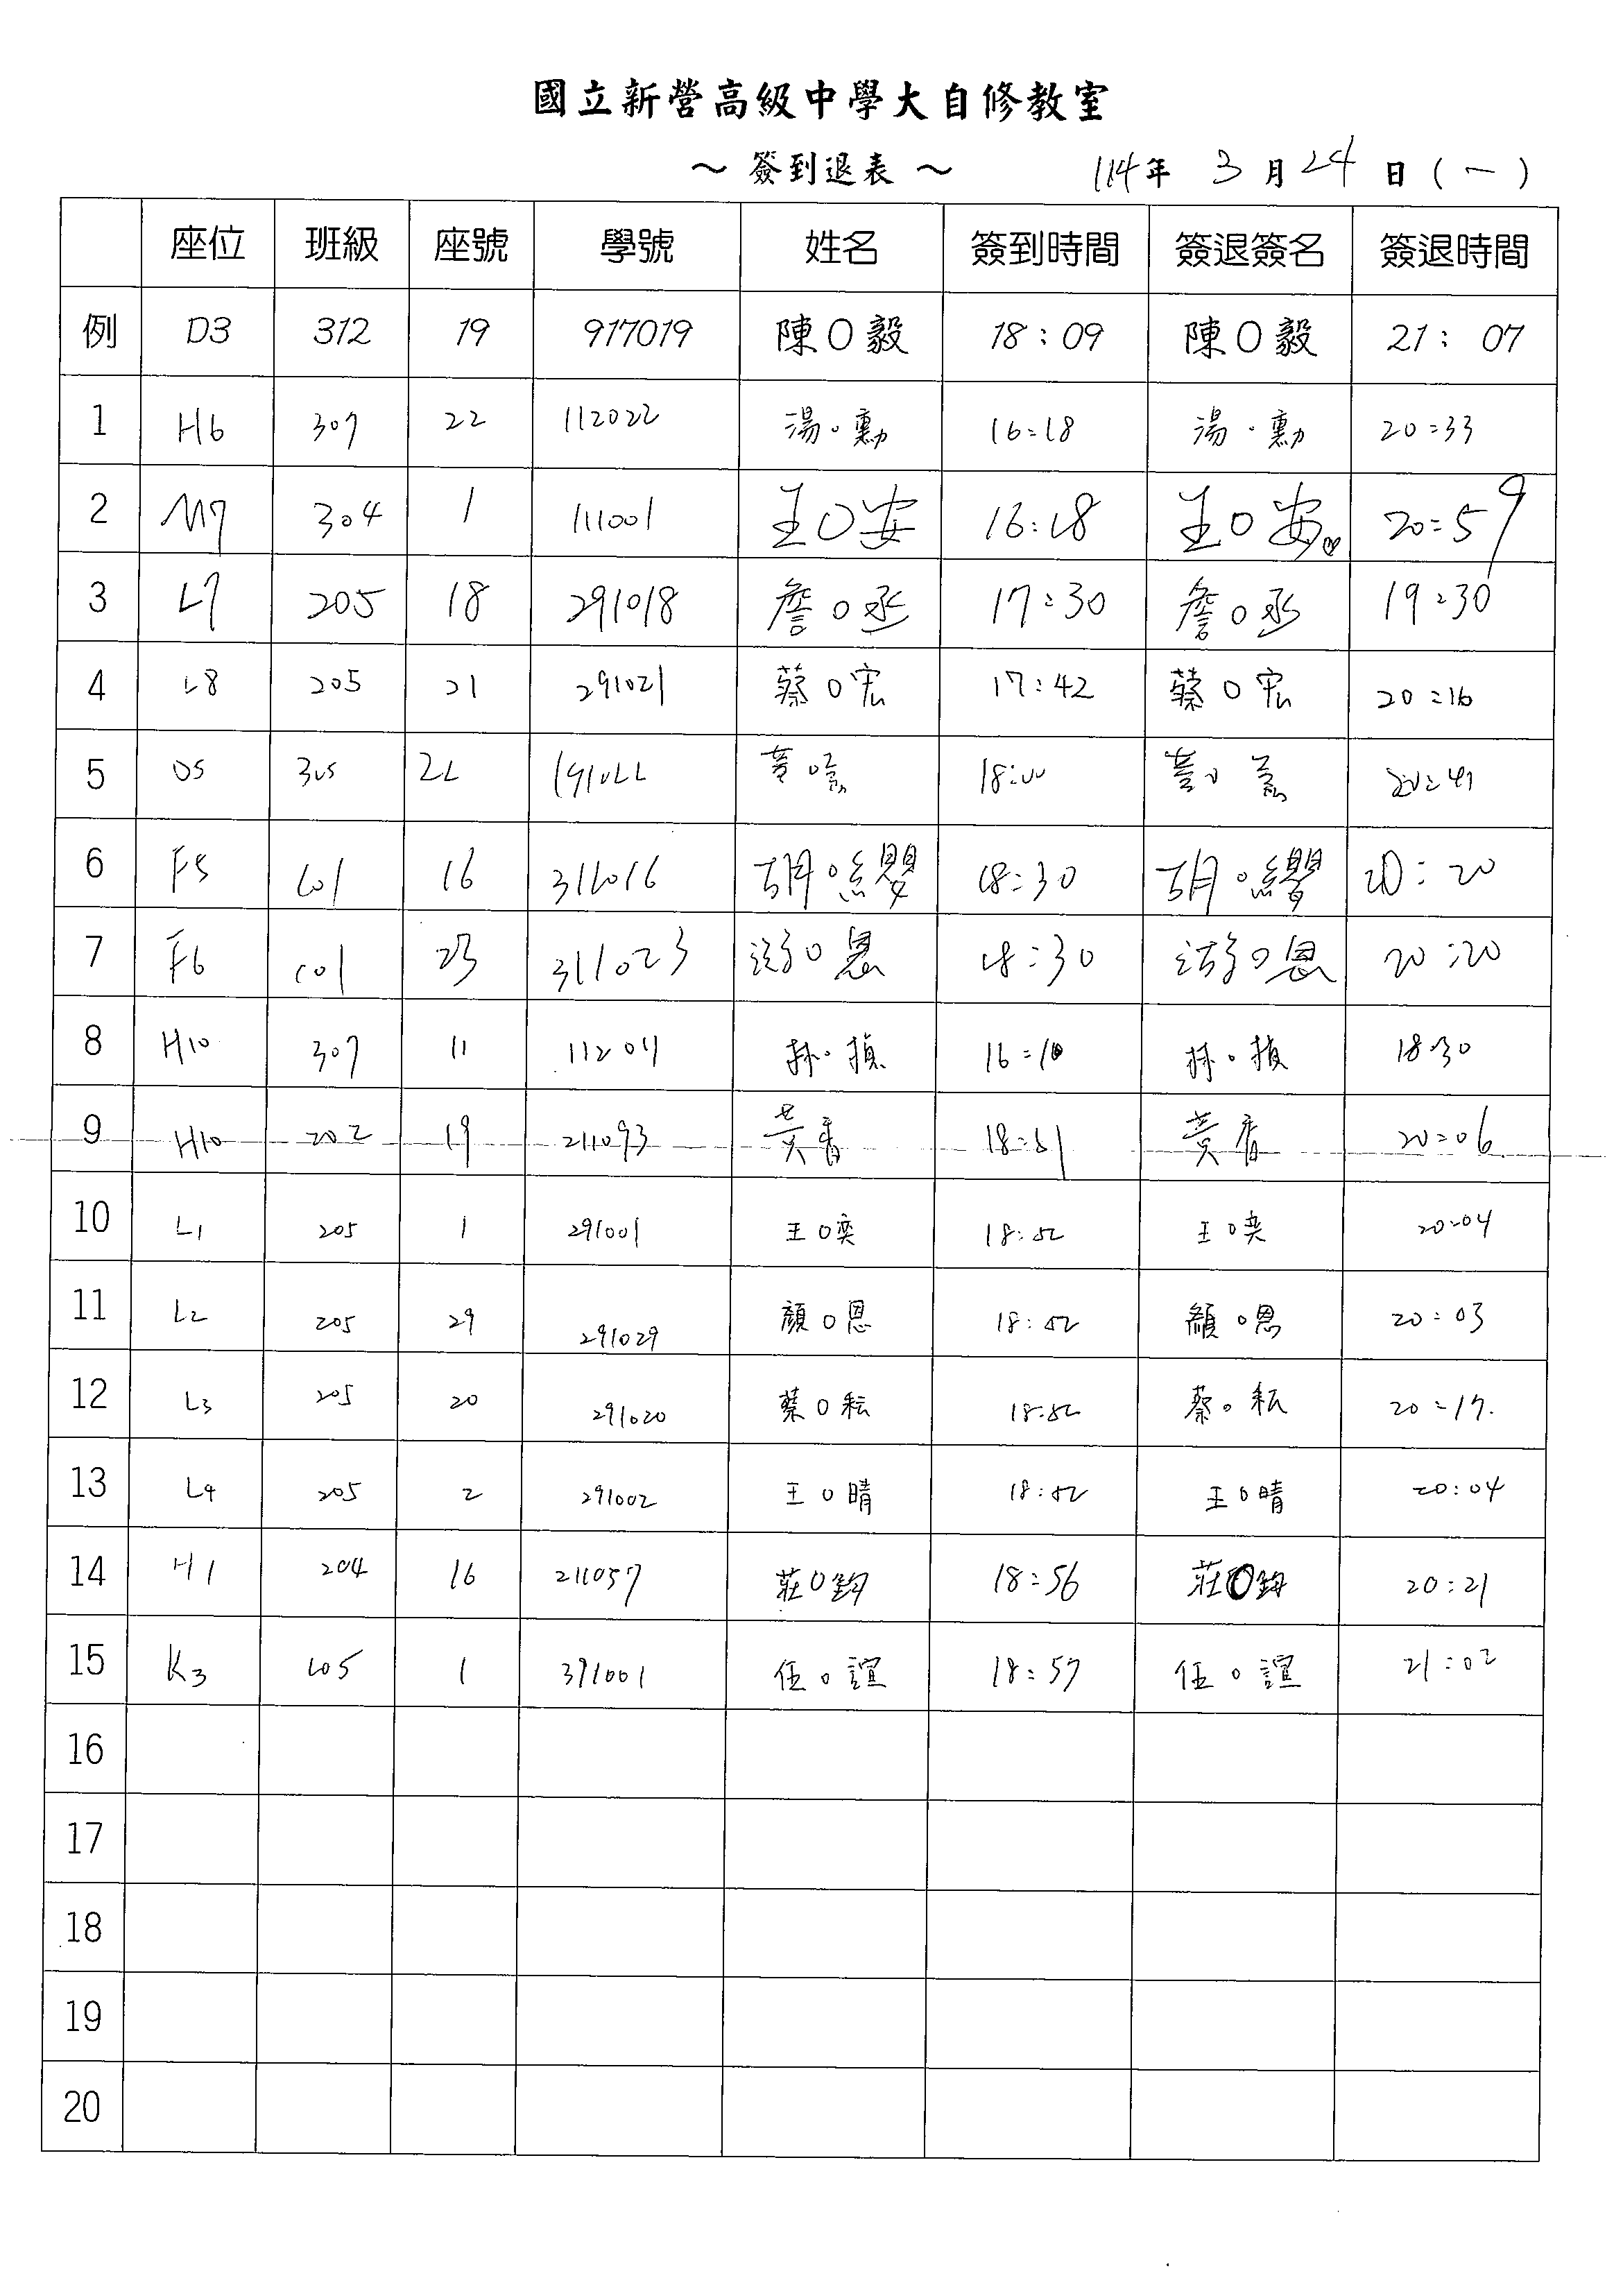 國立新營高級中學大自修教室
～ 簽到退表 ～ 114年 3月24日(一)
座位 班級 座號 學號 姓名 簽到時間 簽退簽名 簽退時間
例 D3 312 19 917019 陳O毅 18:09 陳O毅 21:07
1 H6 307 22 112022 湯。勳 16:18 湯.勳 20:33
2 M7 304 1 111001 王O安 16:18 王O安 20:59
3 L7 205 18 291018 詹O丞 17:30 詹O丞 19:30
4 L8 205 21 291021 蔡O宏 17:42 蔡O宏 20:16
5 D5 305 22 191022 黃O 18:00 黃O 20:41
6 F5 101 16 311016 胡O纓 18:30 胡O纓 20:20
7 F6 101 23 311023 游O恩 18:30 游O恩 20:20
8 H10 307 11 112011 林。禎 16:10 林。禎 18:30
9 H10 202 19 211093 黃 18:51 黃 20:06
10 L1 205 1 291001 王O奕 18:52 王O奕 20:04
11 L2 205 29 291029 顏O恩 18:52 顏O恩 20:03
12 L3 205 20 291020 蔡O耘 18:52 蔡O耘 20:17.
13 L4 205 2 291002 王O晴 18:52 王O晴 20:04
14 H1 204 16 211057 莊O鈞 18:56 莊O鈞 20:21
15 K3 105 1 391001 伍O誼 18:57 伍O誼 21:02
16
17
18
19
20